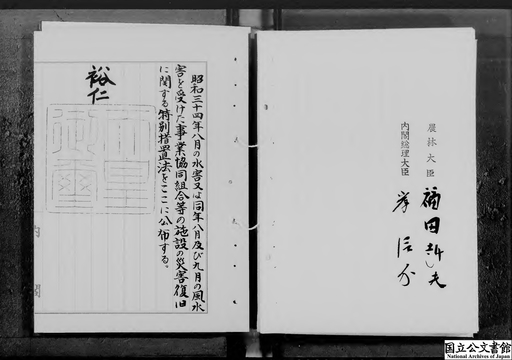 農林大臣 福田赳夫
内閣総理大臣 岸信介
昭和三十四年八月の水害又は同年八月及び九月の風水
害を受けた事業協同組合等の施設の災害復旧
に関する特別措置法をここに公布する。
裕仁
天皇
御璽
内閣
国立公文書館
National Archives of Japan